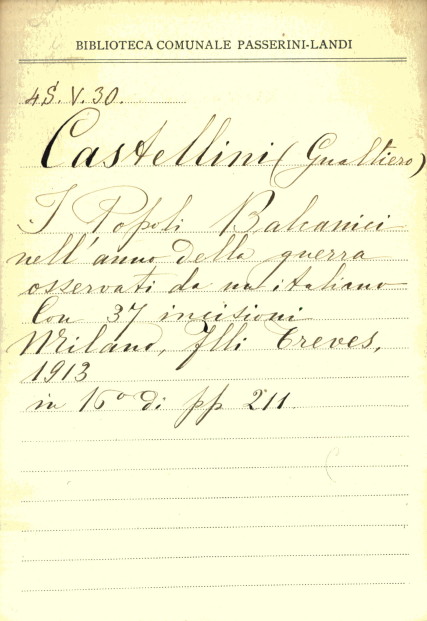 BIBLIOTECA COMUNALE PASSERINI-LANDI
4S. V. 30.
Castellini (Gualtiero)
I Popoli Balcanici
nell'anno della guerra
osservati da un italiano
Con 37 incisioni
Milano, Flli Treves,
1913
in 16° di pp 211